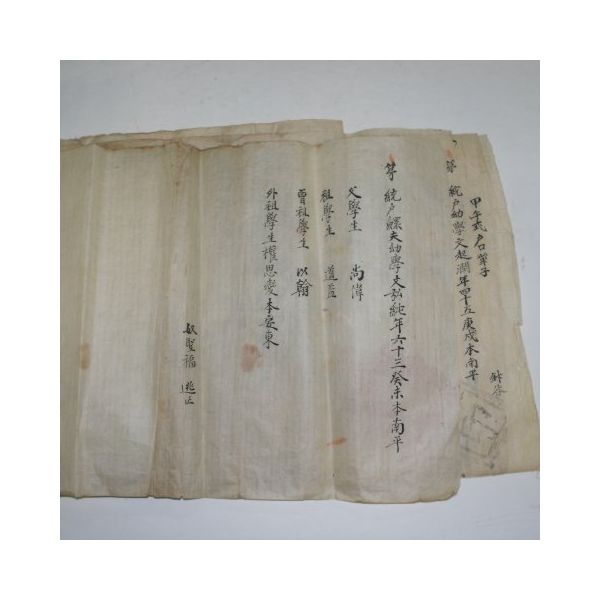 甲午式戶口單子
第 統戶幼學文起潤年四十五庚戌本南平
第 統戶 幼學文弘純年六十三癸未本南平
父學生 尚
祖學生 道益
曾祖學生 以翰
外祖學生權思 本安東
奴聖福 逃亡